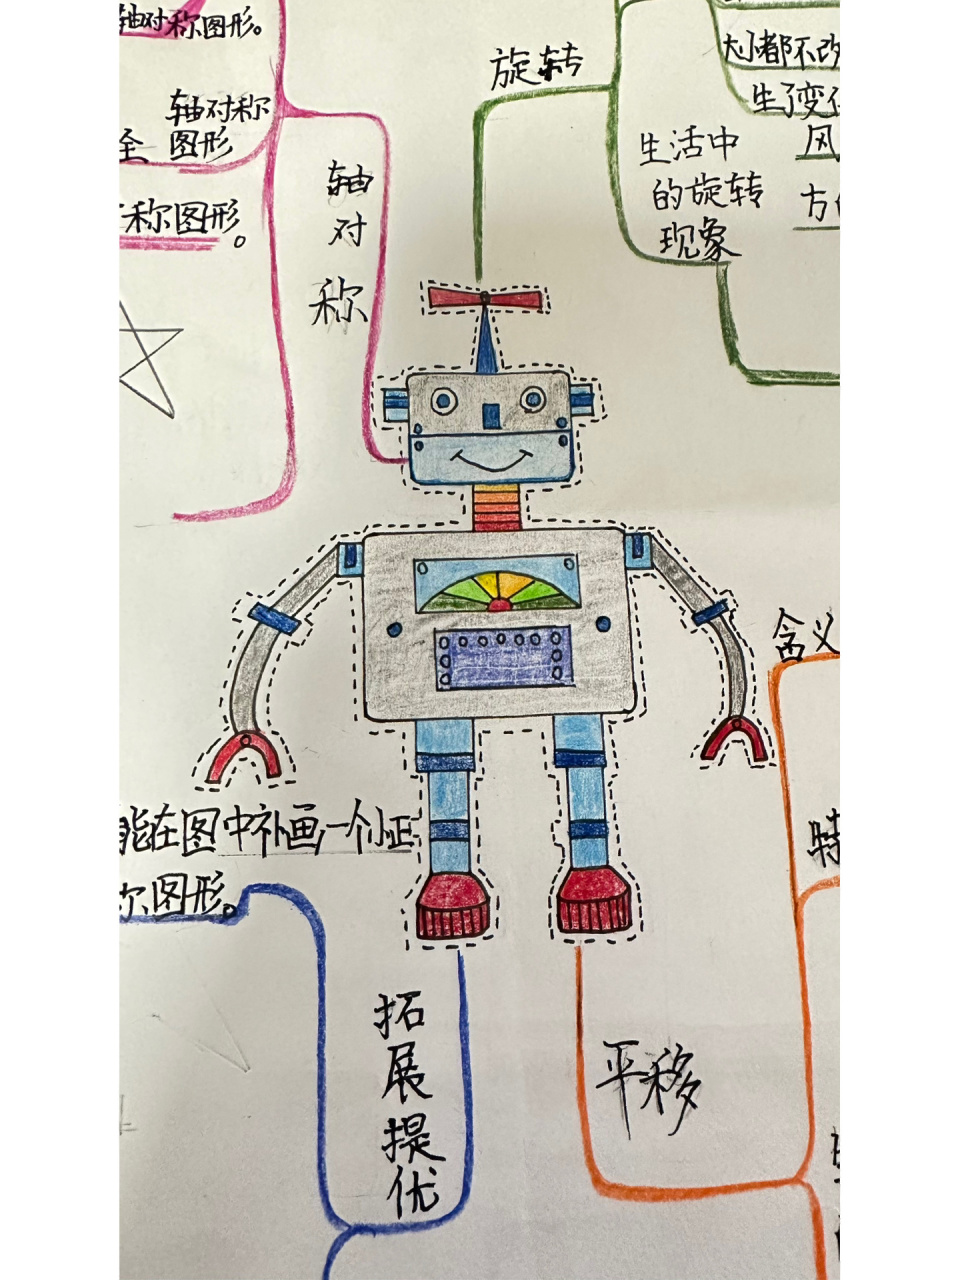 轴对称图形。
轴对称
图形
全
称图形。
轴
对
称
旋转
大小都不改
生了变化
生活中
的旋转
现象
风
方
含义
能在图中补画一个小正
称图形。
拓
展
提
优
平移
特